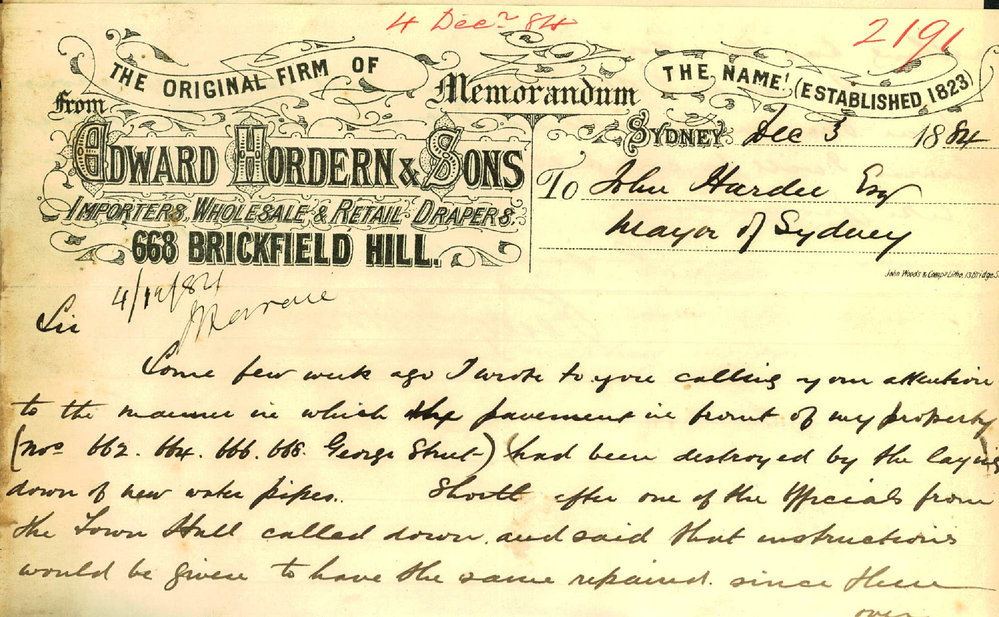 4 Decr 84
2191
THE ORIGINAL FIRM OF
Memorandum
THE NAME! (ESTABLISHED 1823)
From
EDWARD HORDERN & SONS
IMPORTERS, WHOLESALE & RETAIL DRAPERS.
668 BRICKFIELD HILL.
SYDNEY Dec 3 1884
To John Hardie Esq
Mayor of Sydney
John Woods & Compy Litho, 13 Bridge S
4/12/84
Sir
Some few week ago I wrote to you calling your attention
to the manner in which the pavement in front of my property
(nos 662. 664. 666. 668. George Street) had been destroyed by the laying
down of new water pipes. Shortl after one of the Officials from
the Town Hall called down, and said that instructions
would be given to have the same repaired. since then
over